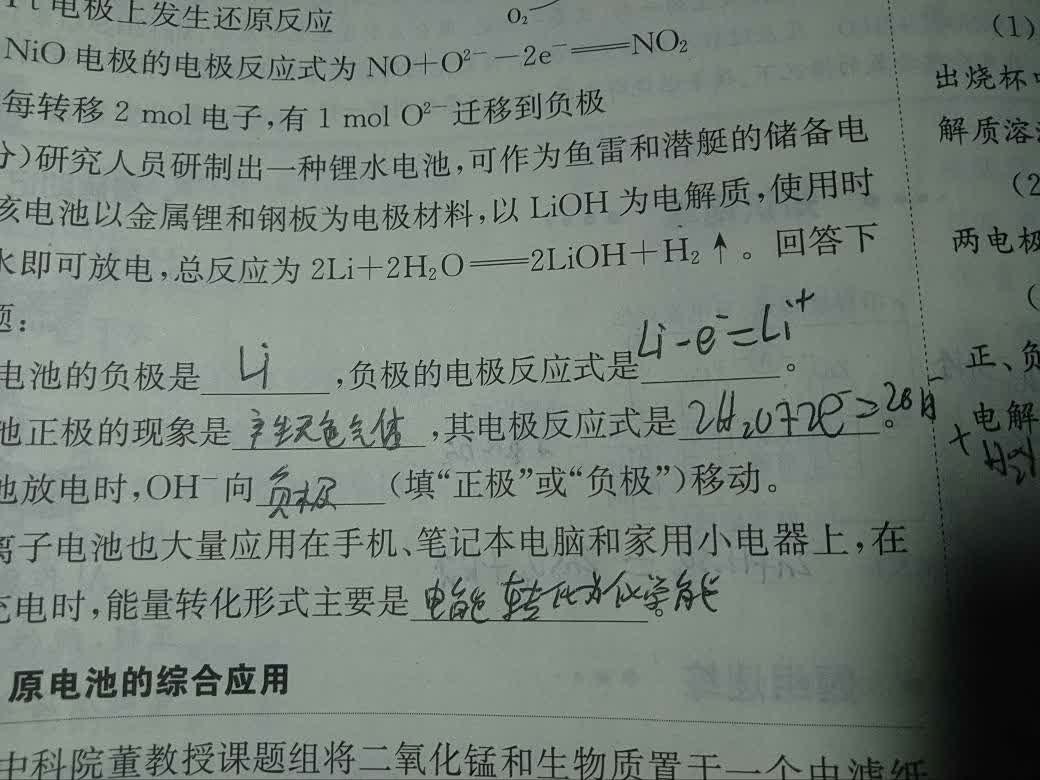 Pt电极上发生还原反应
O₂
NiO电极的电极反应式为NO+O²⁻−2e⁻══NO₂
每转移2 mol电子,有1 mol O²⁻迁移到负极
分)研究人员研制出一种锂水电池,可作为鱼雷和潜艇的储备电
该电池以金属锂和钢板为电极材料,以LiOH为电解质,使用时
水即可放电,总反应为2Li+2H₂O══2LiOH+H₂↑。回答下
题:
电池的负极是 Li ,负极的电极反应式是 Li-e⁻=Li⁺ 。
池正极的现象是 产生无色气体 ,其电极反应式是 2H₂O+2e⁻=2OH⁻ 。
+H₂↑
池放电时,OH⁻向 负极 (填“正极”或“负极”)移动。
离子电池也大量应用在手机、笔记本电脑和家用小电器上,在
充电时,能量转化形式主要是 电能转化为化学能 。
原电池的综合应用
中科院董教授课题组将二氧化锰和生物质置于一个由滤纸
(1)
出烧杯中
解质溶液
(2
两电极
(
正、负
电解